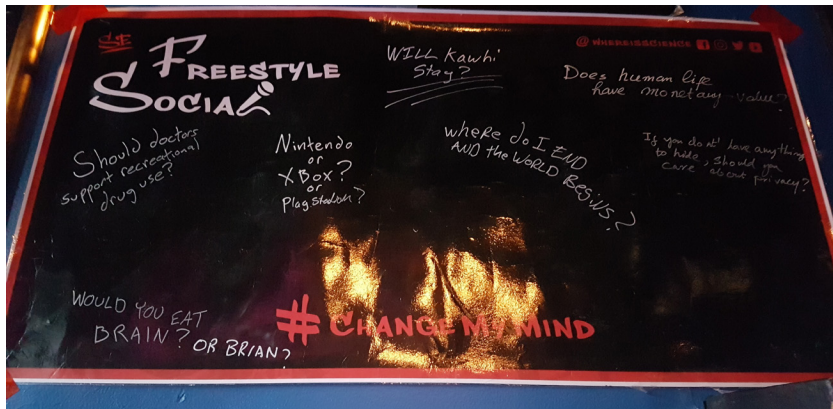 SE
FREESTYLE
SOCIAL
WILL Kawhi
Stay?
@WHEREISSCIENCE
Does human life
have monetary value?
Should doctors
support recreational
drug use?
Nintendo
or
XBox?
or
Playstation?
where do I END
AND the WORLD BEGINS?
If you don't have anything
to hide, should you
care about privacy?
WOULD YOU EAT
BRAIN?
OR BRIAN?
#CHANGEMYMIND